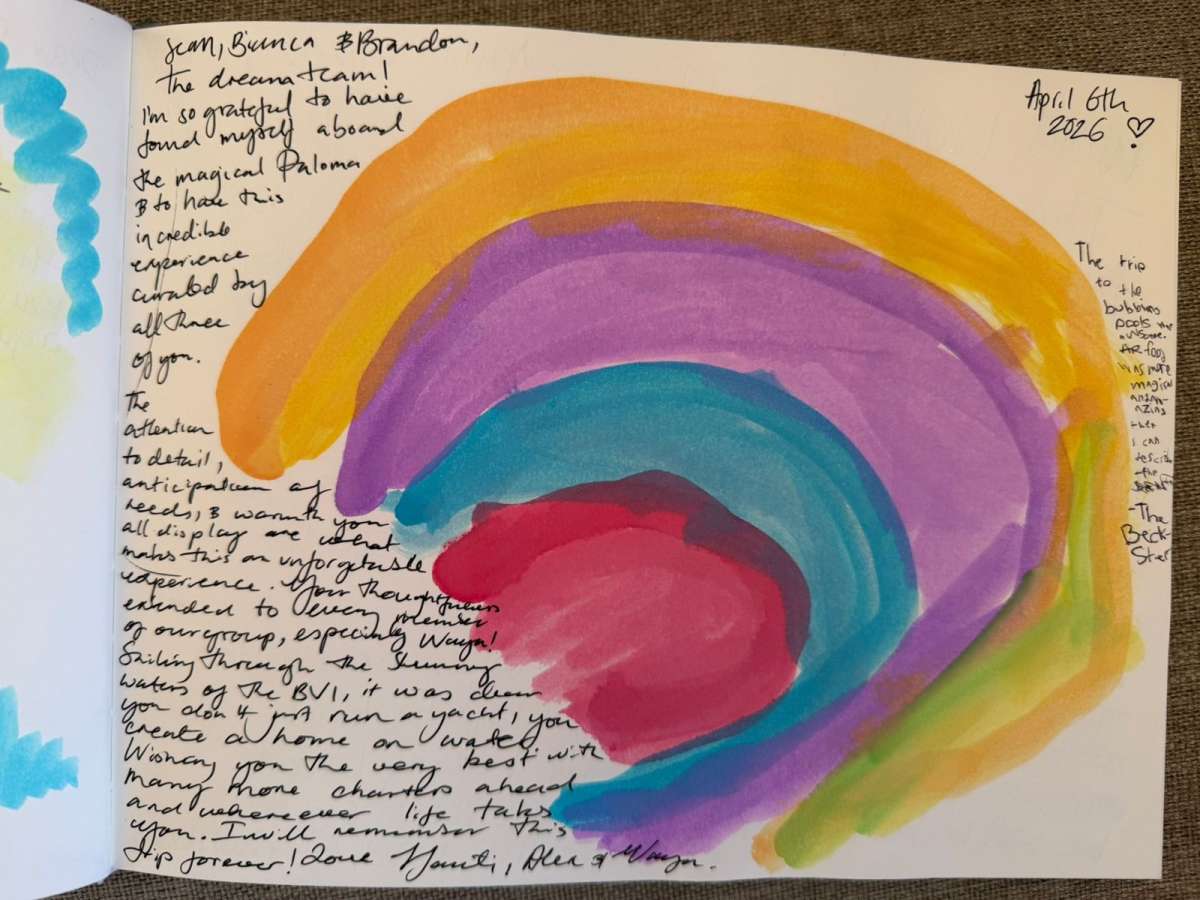 Sean, Bianca & Brandon,
The dream team!
I'm so grateful to have
found myself aboard
the magical Paloma
& to have this
incredible
experience
curated by
all three
of you.
The
attention
to detail,
anticipation of
needs, & warmth you
all display are what
makes this an unforgetable
experience. Your thoughtfulness
extended to every member
of our group, especially Waya!
Sailing through the stunning
waters of the BVI, it was clear
you don't just run a yacht, you
create a home on water.
Wishing you the very best with
many more charters ahead
and whereever life takes
you. I will remember this
trip forever! Love Alex & Waya.
April 6th
2026 ♡
The trip
to the
bubbling
pools was
awsome.
food
was more
magical
and am-
azing
then
I can
describe
the
-The
Beck-
Ster